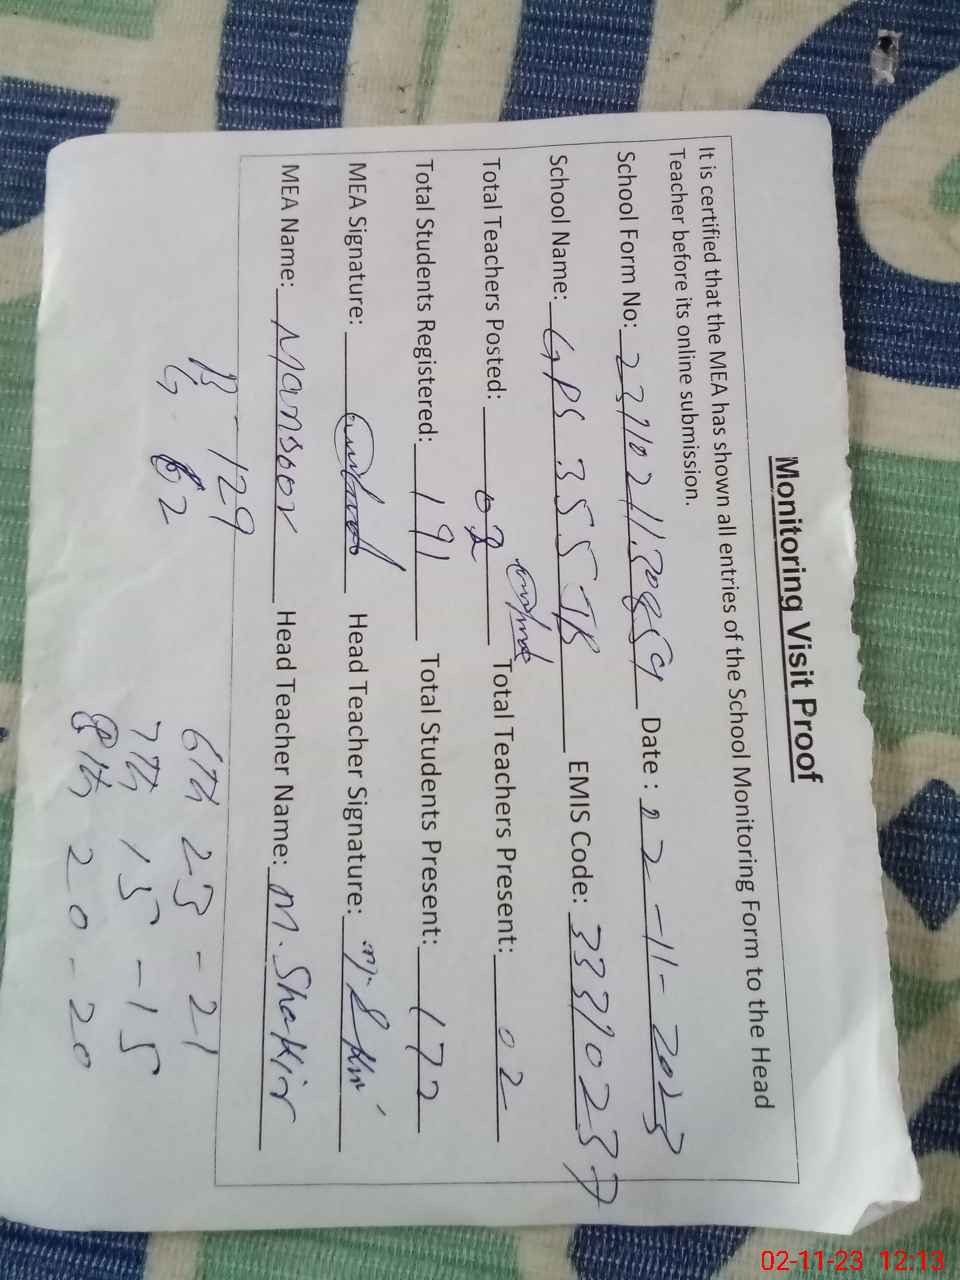 Monitoring Visit Proof
It is certified that the MEA has shown all entries of the School Monitoring Form to the Head
Teacher before its online submission.
School Form No: Date : 02-11-2023
School Name: GPS 355 JB EMIS Code:
Total Teachers Posted: 02 Total Teachers Present: 02
Total Students Registered: 191 Total Students Present: 172
MEA Signature: Head Teacher Signature:
MEA Name: Mansoor Head Teacher Name: M. Shakir
B - 129
G. 62
6th 23 - 21
7th 15 - 15
8th 20 - 20
02-11-23 12:13